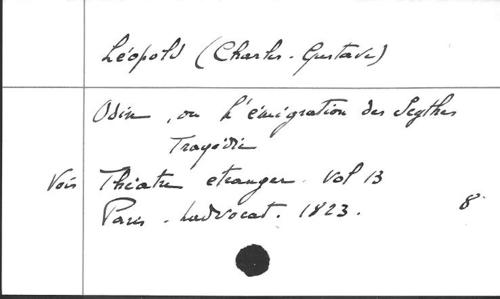 Léopold (Charles-Gustave)
Odin, ou L'émigration des Scythes
Tragédie
Vois Théatre etranger. Vol 13
Paris. Ladvocat. 1823. 8°